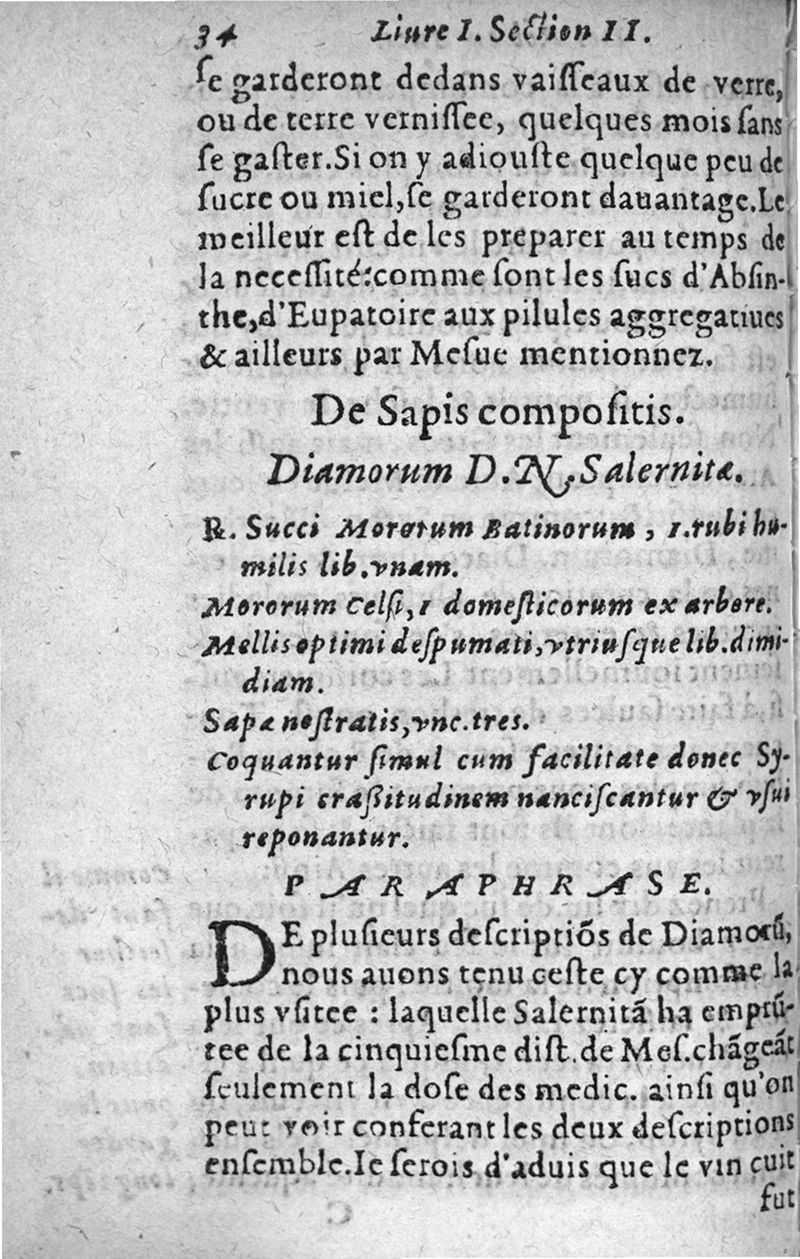 34 Liure I. Section II.
ſe garderont dedans vaiſſeaux de verre,
ou de terre verniſſee, quelques mois ſans
ſe gaſter. Si on y adiouſte quelque peu de
ſucre ou miel, ſe garderont dauantage. Le
meilleur eſt de les preparer au temps de
la neceſſité: comme ſont les ſucs d'Abſin-
the, d'Eupatoire aux pilules aggregatiues
& ailleurs par Meſue mentionnez.
De Sapis compoſitis.
Diamorum D. N. Salernitæ.
℞. Succi Mororum Batinorum, i. rubi hu-
milis lib. vnam.
Mororum Celſi, i domeſticorum ex arbore.
Mellis optimi deſpumati, vtriuſque lib. dimi-
diam.
Sapæ noſtratis, vnc. tres.
Coquantur ſimul cum facilitate donec Sy-
rupi craſſitudinem nanciſcantur & vſui
reponantur.
PARAPHRASE.
DE pluſieurs deſcriptiõs de Diamorũ,
nous auons tenu ceſte cy comme la
plus vſitee : laquelle Salernitã ha emprũ-
tee de la cinquieſme diſt. de Meſ. chãgeãt
ſeulement la doſe des medic. ainſi qu'on
peut voir conferant les deux deſcriptions
enſemble. Ie ſerois d'aduis que le vin cuit
fut